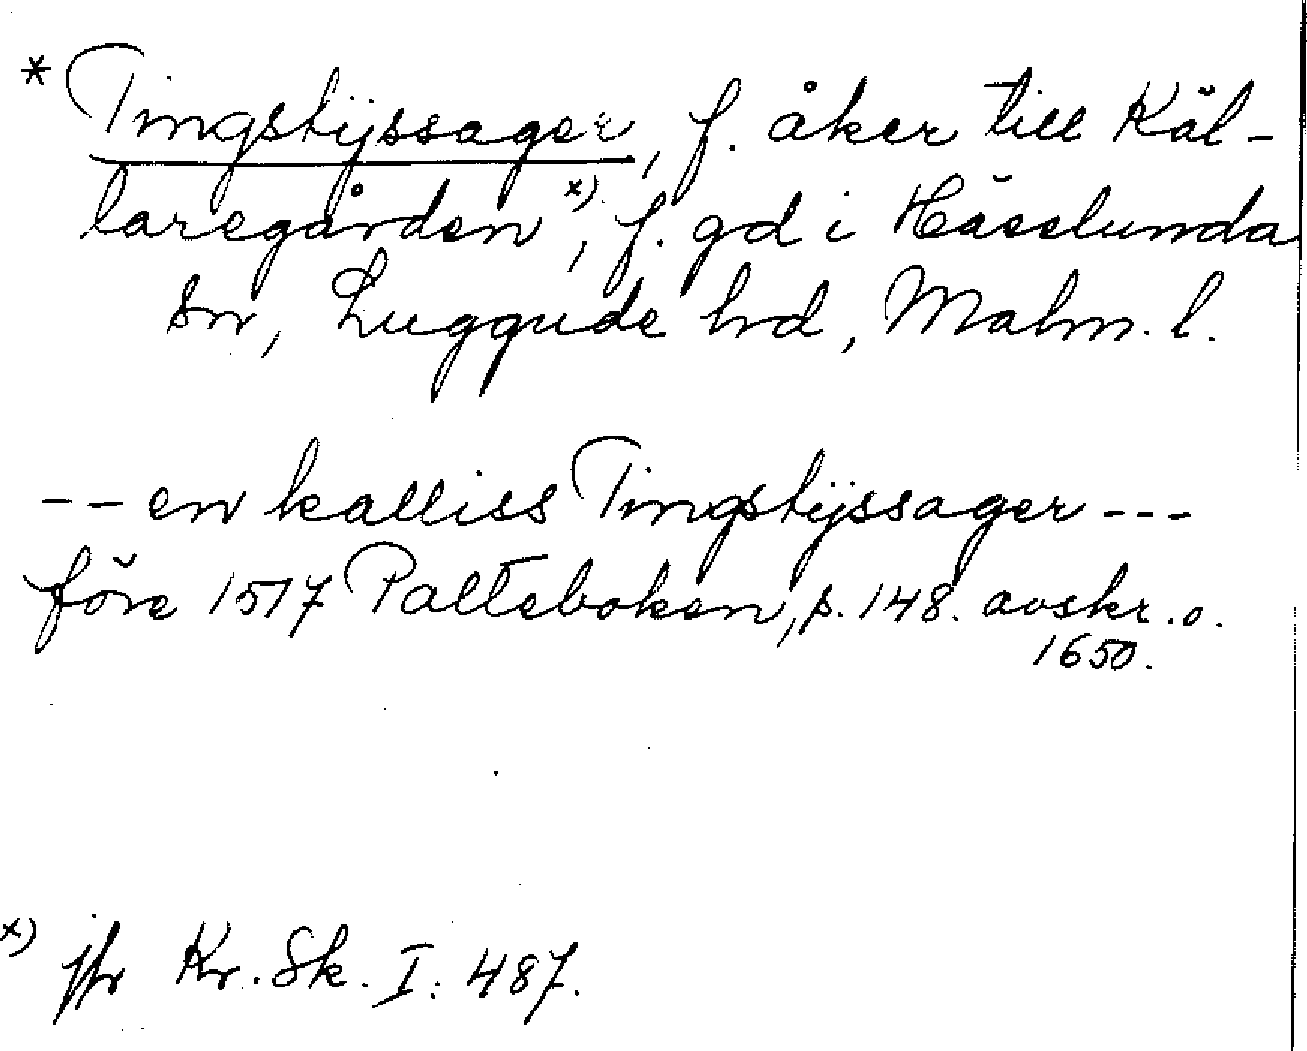 * Tingstijssager, f. åker till Käl-
laregården x), f. gd i Hässlunda
sn, Luggude hd, Malm. l.
-- en kalliss Tingstijssager ---
före 1517 Palteboken, p. 148. avskr. o.
1650.
x) jfr Kr. Sk. I: 487.